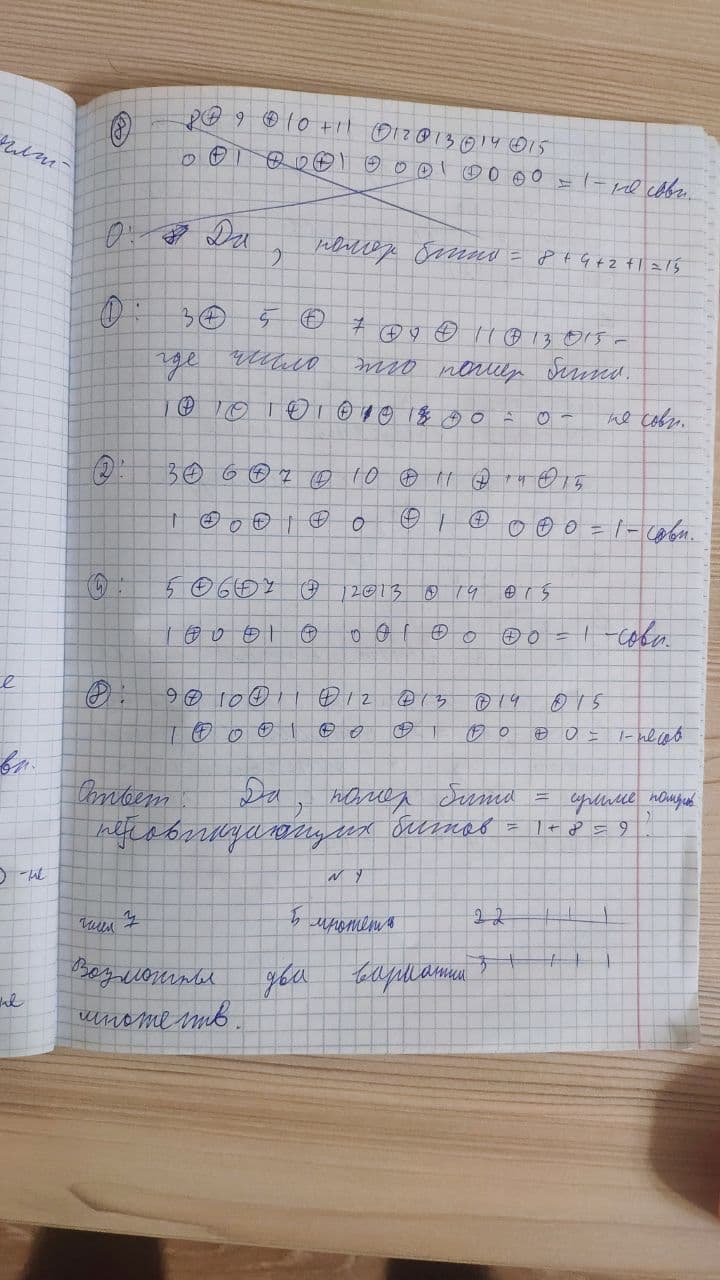 ⑧ 8 ⊕ 9 ⊕ 10 + 11 ⊕ 12 ⊕ 13 ⊕ 14 ⊕ 15
0 ⊕ 1 ⊕ 0 ⊕ 1 ⊕ 0 ⊕ 1 ⊕ 0 ⊕ 0 = 1 - не совп.
О: Да, номер бита = 8 + 4 + 2 + 1 = 15
①: 3 ⊕ 5 ⊕ 7 ⊕ 9 ⊕ 11 ⊕ 13 ⊕ 15 -
где число это номер бита.
1 ⊕ 1 ⊕ 1 ⊕ 1 ⊕ 1 ⊕ 1 ⊕ 0 = 0 - не совп.
②: 3 ⊕ 6 ⊕ 7 ⊕ 10 ⊕ 11 ⊕ 14 ⊕ 15
1 ⊕ 0 ⊕ 1 ⊕ 0 ⊕ 1 ⊕ 0 ⊕ 0 = 1 - совп.
④: 5 ⊕ 6 ⊕ 7 ⊕ 12 ⊕ 13 ⊕ 14 ⊕ 15
1 ⊕ 0 ⊕ 1 ⊕ 0 ⊕ 1 ⊕ 0 ⊕ 0 = 1 - совп.
⑧: 9 ⊕ 10 ⊕ 11 ⊕ 12 ⊕ 13 ⊕ 14 ⊕ 15
1 ⊕ 0 ⊕ 1 ⊕ 0 ⊕ 1 ⊕ 0 ⊕ 0 = 1 - не сов
Ответ: Да, номер бита = сумме номеров
несовпадающих битов = 1 + 8 = 9
чисел 7 5 множеств 2 2
Возможны два варианта 3
множеств.